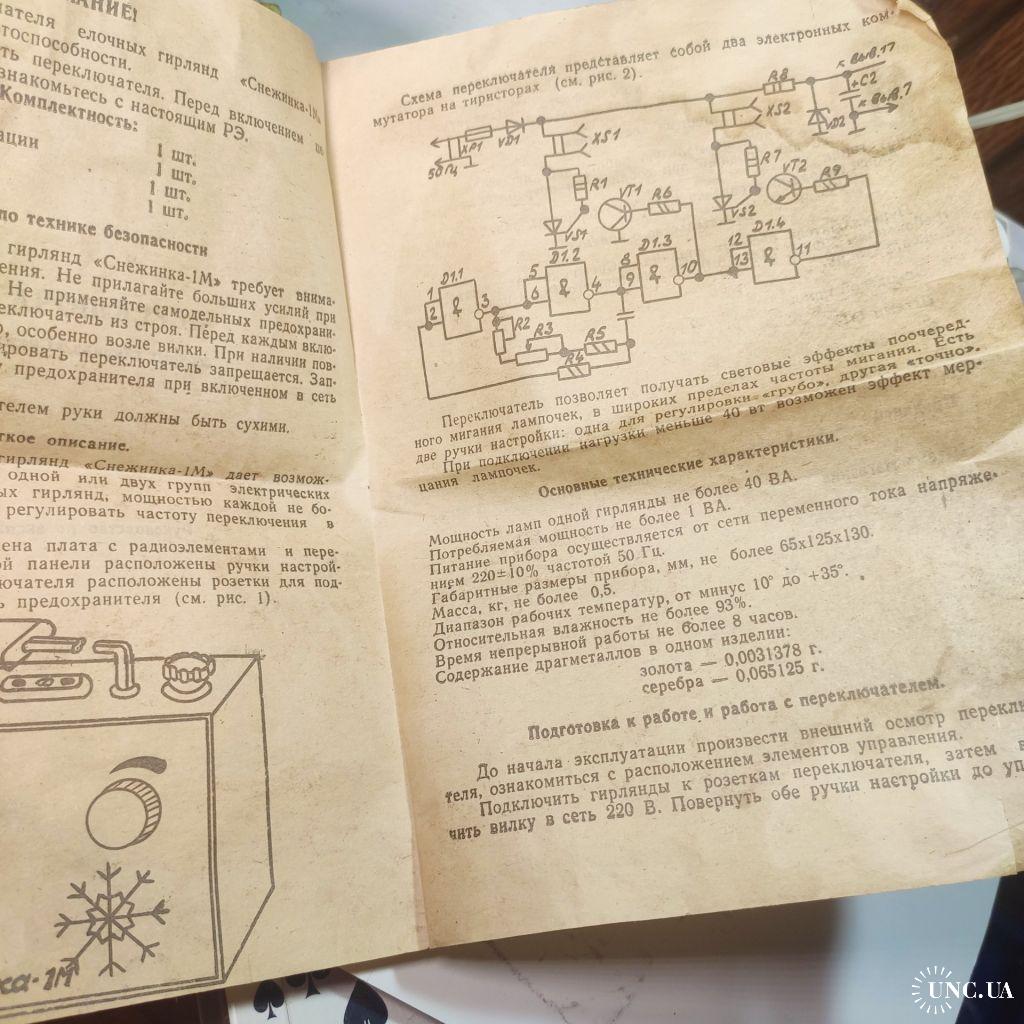 АНИЕ!
чателя елочных гирлянд «Снежинка-1М»
тоспособности.
ть переключателя. Перед включением
знакомьтесь с настоящим РЭ.
Комплектность:
ации 1 шт.
1 шт.
1 шт.
1 шт.
по технике безопасности
гирлянд «Снежинка-1М» требует внима-
ения. Не прилагайте больших усилий при
Не применяйте самодельных предохрани-
еключатель из строя. Перед каждым вклю-
о, особенно возле вилки. При наличии пов-
ировать переключатель запрещается. Зап-
у предохранителя при включенном в сеть
телем руки должны быть сухими.
ткое описание.
гирлянд «Снежинка-1М» дает возмож-
одной или двух групп электрических
ых гирлянд, мощностью каждой не бо-
регулировать частоту переключения в
ена плата с радиоэлементами и пере-
ой панели расположены ручки настрой-
ючателя расположены розетки для под-
ь предохранителя (см. рис. 1).
ка-1М
Схема переключателя представляет собой два электронных ком-
мутатора на тиристорах (см. рис. 2).
XP1
50Гц
VD1
XS1
R1
VT1
R6
VS1
XS2
R7
VT2
R9
VS2
R8
к выв.17
+C2
VD2
к выв.7
D1.1
1
2
&
3
D1.2
5
6
&
4
D1.3
8
9
&
10
D1.4
12
13
&
11
R2
R3
R4
R5
Переключатель позволяет получать световые эффекты поочеред-
ного мигания лампочек, в широких пределах частоты мигания. Есть
две ручки настройки: одна для регулировки «грубо», другая «точно».
При подключении нагрузки меньше 40 вт возможен эффект мер-
цания лампочек.
Основные технические характеристики.
Мощность ламп одной гирлянды не более 40 ВА.
Потребляемая мощность не более 1 ВА.
Питание прибора осуществляется от сети переменного тока напряже-
нием 220±10% частотой 50 Гц.
Габаритные размеры прибора, мм, не более 65х125х130.
Масса, кг, не более 0,5.
Диапазон рабочих температур, от минус 10° до +35°.
Относительная влажность не более 93%.
Время непрерывной работы не более 8 часов.
Содержание драгметаллов в одном изделии:
золота — 0,0031378 г.
серебра — 0,065125 г.
Подготовка к работе и работа с переключателем.
До начала эксплуатации произвести внешний осмотр переклю
теля, ознакомиться с расположением элементов управления.
Подключить гирлянды к розеткам переключателя, затем в
чить вилку в сеть 220 В. Повернуть обе ручки настройки до уп
UNC.UA